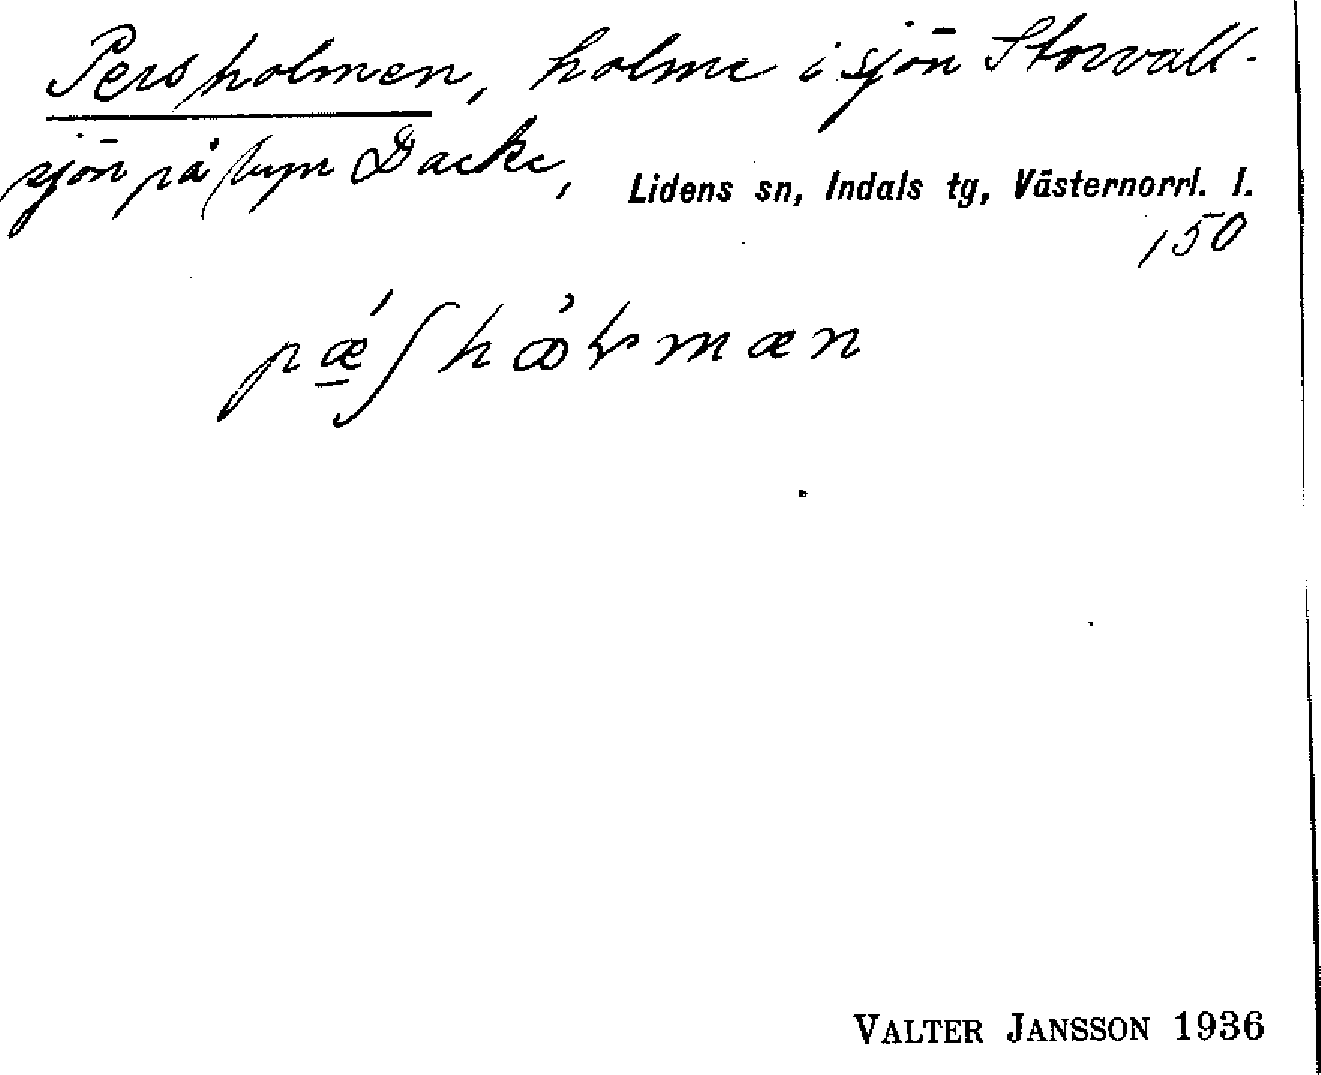 Persholmen, holme i sjön Storvall-
sjön på byn Dacke, Lidens sn, Indals tg, Västernorrl. l.
150
VALTER JANSSON 1936